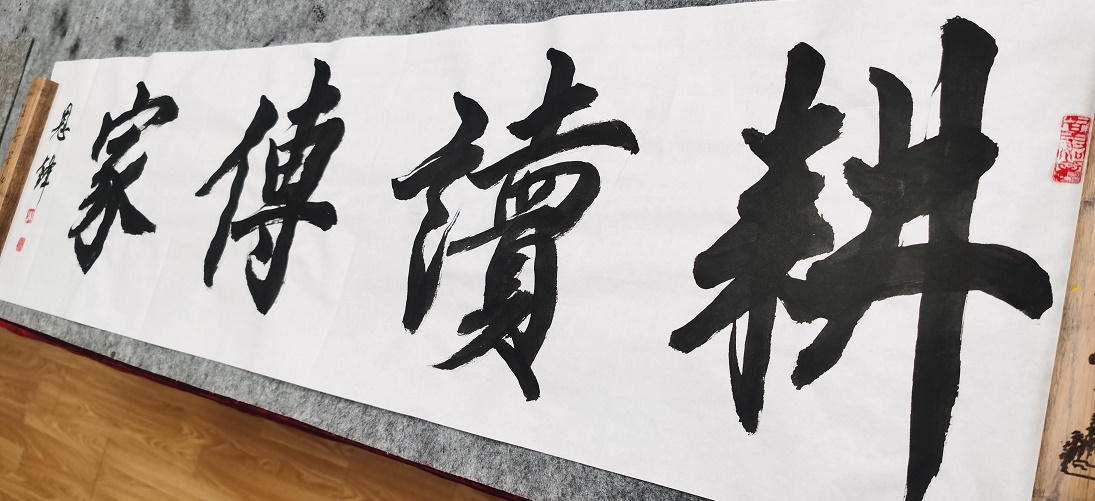 耕讀傳家